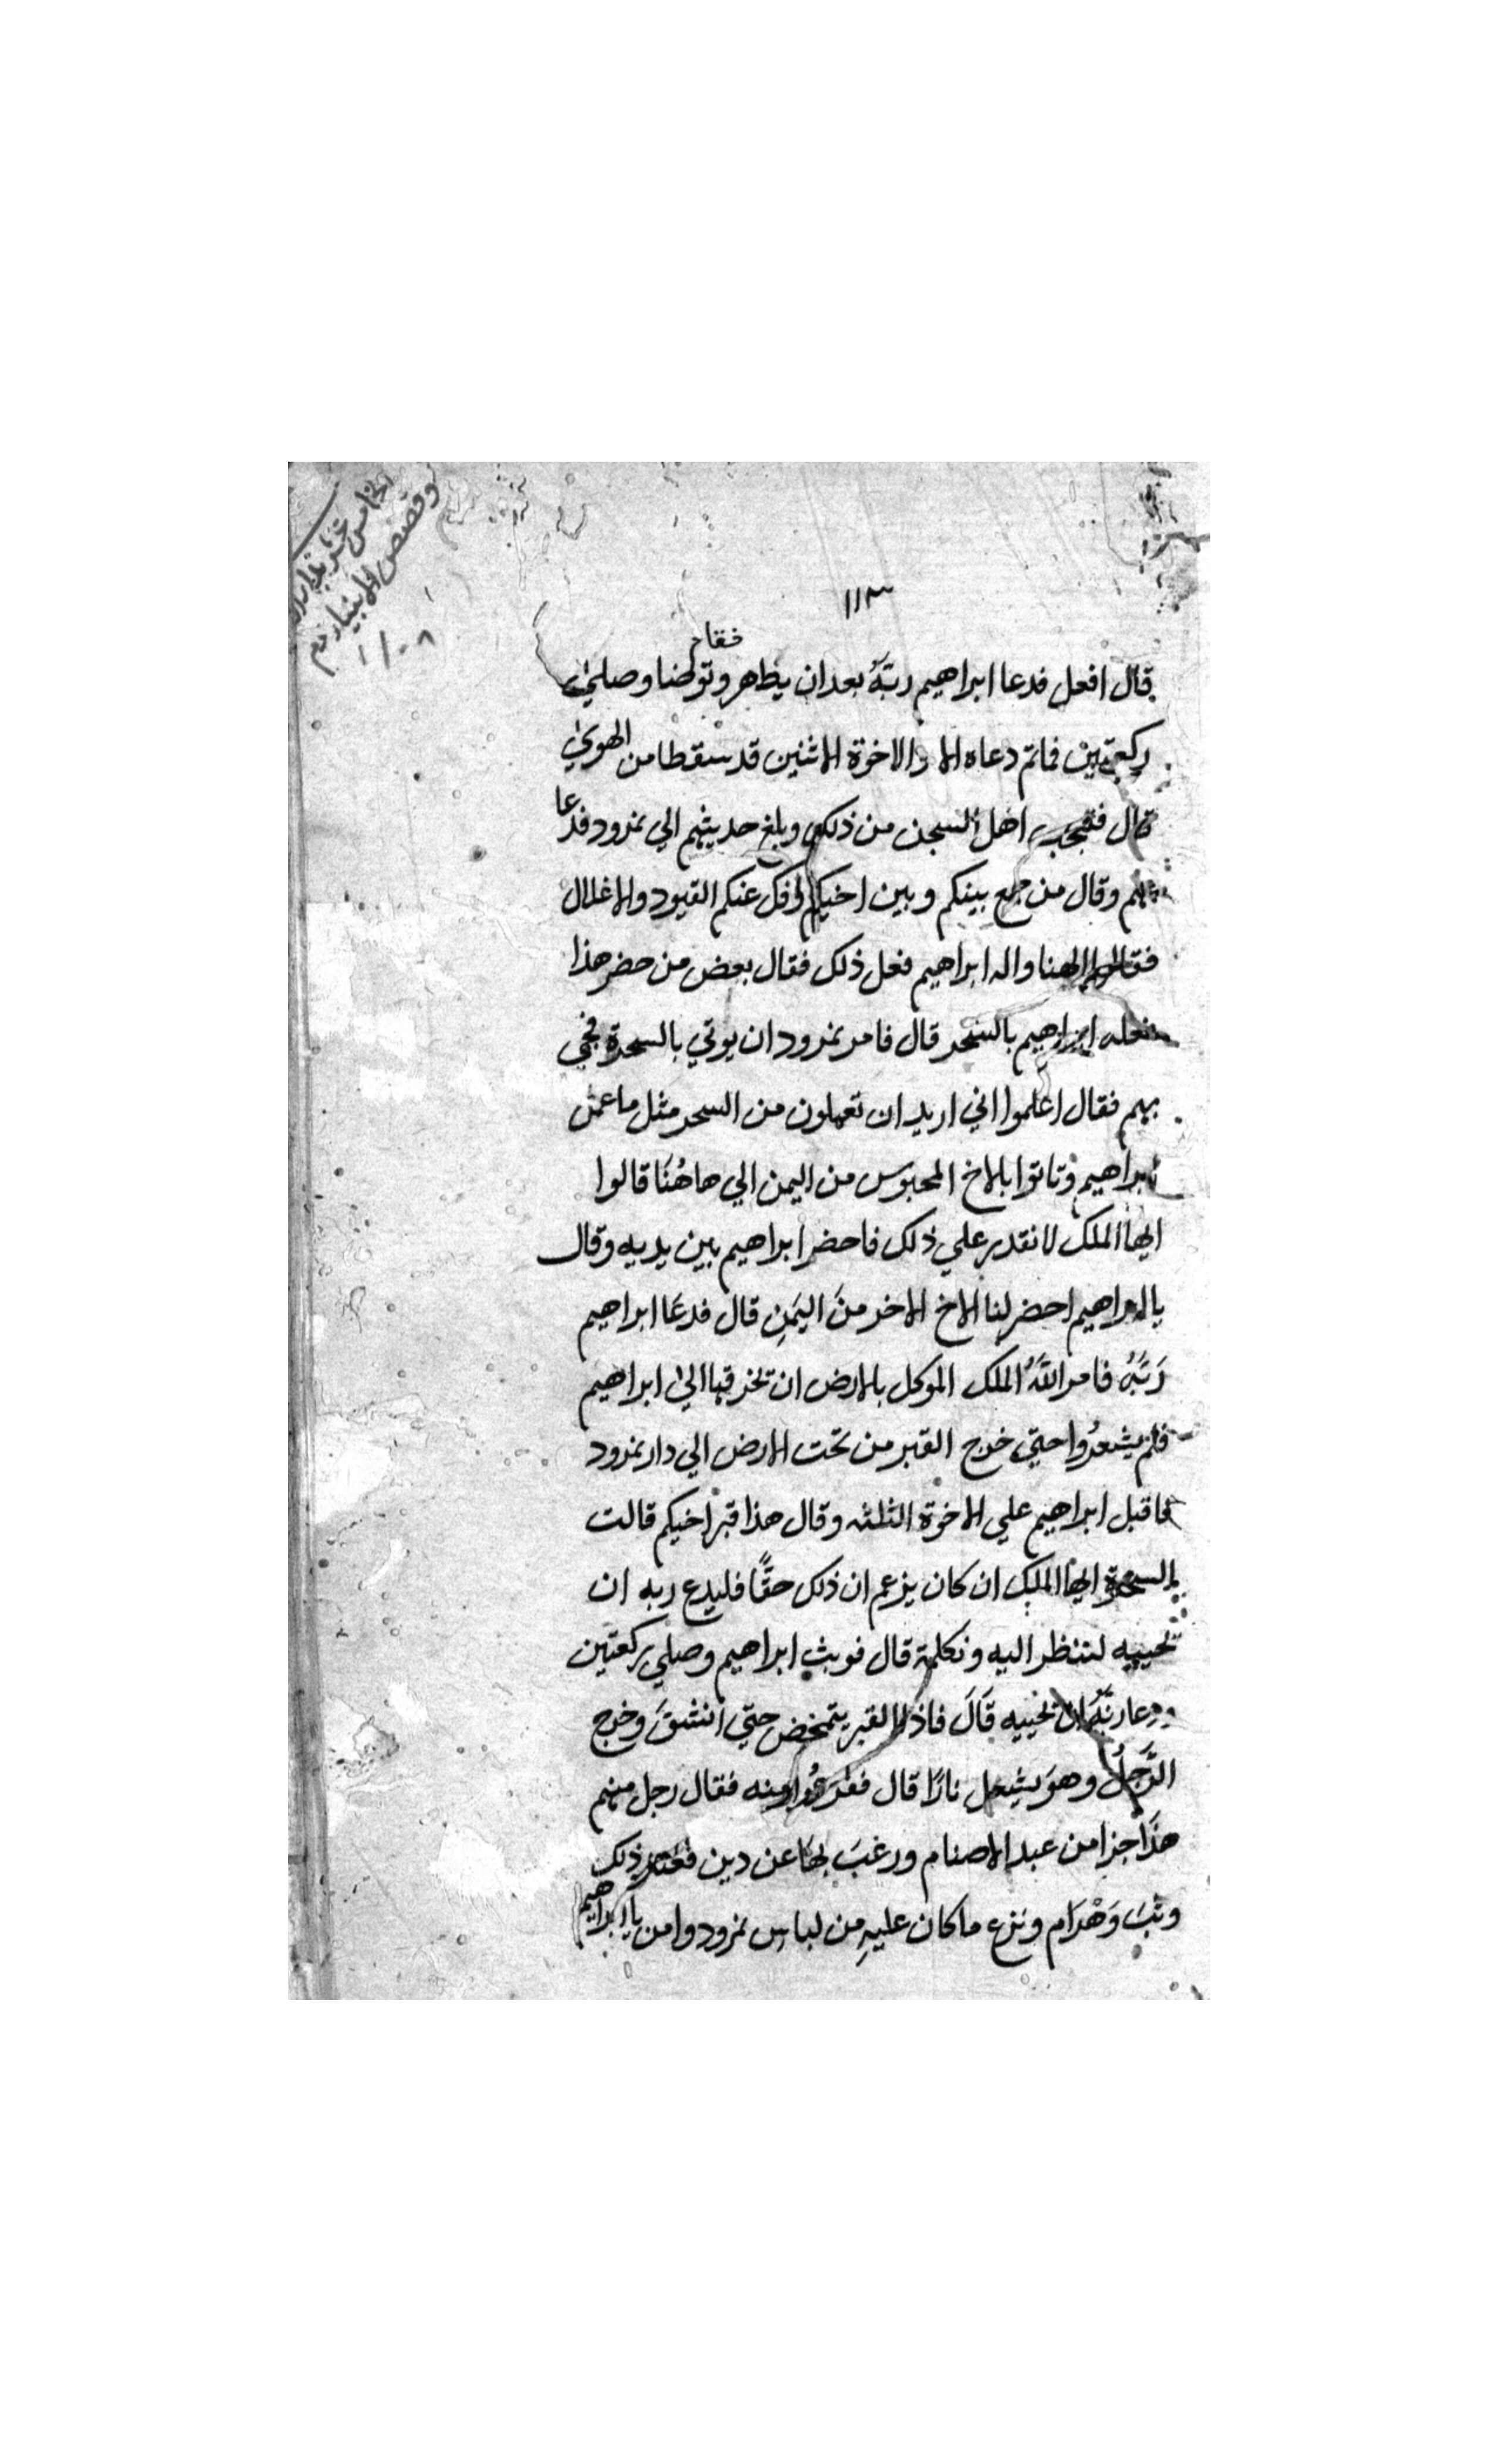 الخامس من
وقصص الانبياء
١٠٨
١١٣
فقام
قال افعل فدعا ابراهيم ربَّهُ بعد ان يطاهر وتوضا وصلىٰ
ركعتين فماتم دعاه الا والاخوة الاثنين قد سقطا من الهوىٰ
قال فتعجب اهل السجن من ذلك وبلغ حديثهم الي نمرود فدعا
بهم وقال من جمع بينكم وبين اخيكم وفك عنكم القيود والاغلال
فقالوا الهنا واله ابراهيم فعل ذلك فقال بعض من حضر هذا
فعله ابراهيم بالسحر قال فامر نمرود ان يوتي بالسحرة فجي
بهم فقال اعلموا اني اريد ان تعملون من السحر مثل ما عمل
ابراهيم وتاتوا بالاخ المحبوس من اليمن الي هاهُنَا قالوا
ايها الملك لا نقدر علي ذلك فاحضر ابراهيم بين يديه وقال
يا ابراهيم احضر لنا الاخ الاخر منَ اليَمَنِ قال فدعَا ابراهيم
رَبَّهُ فامر اللّهُ الملك الموكل بالارض ان تخرقها الىٰ ابراهيم
فلم يشعرُوا حتي خرج القبر من تحت الارض الي دار نمرود
فاقبل ابراهيم علي الاخوة الثلثه وقال هذا قبر اخيكم قالت
السحرة ايها الملك ان كان يزعم ان ذلك حقًّا فليدع ربه ان
يحييه لننظر اليه ونكلمة قال فوبث ابراهيم وصلي ركعتين
ودعا ربَّهُ ان يحييه قَالَ فاذا القبر يتمخض حتي انشقَ وخرج
الرَّجلُ وهوَ يشعل نارًا قال ففزعُوا منه فقال رجل منهم
هذَا جزا من عبد الاصنام ورغبَ بهَا عن دين فعند ذلك
وثبَ وَهْرَام ونزع ما كان عليهِ من لباس نمرود وامن بابراهيم